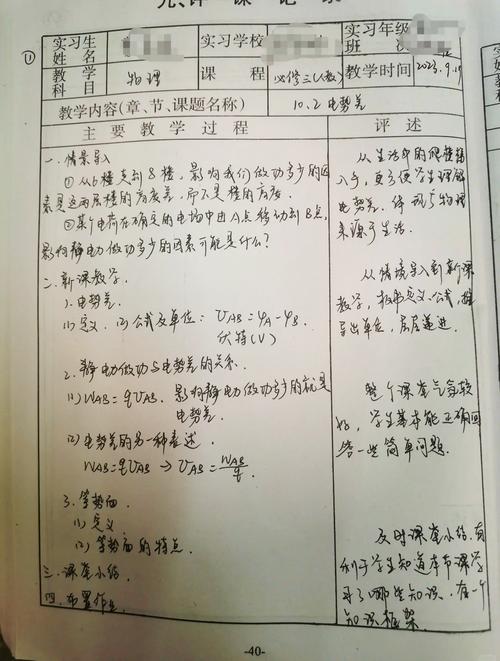 ①
实习生姓名
实习学校
实习年级班次
教学科目 物理
课程 必修三(人教)
教学时间 2023.9.19
教学内容(章、节、课题名称)
10.2 电势差
主要教学过程
一、情景导入
①从6楼走到8楼，影响我们做功多少的因
素是这两层楼的高度差，而不是楼的高度。
②某个电荷在确定的电场中由A点移动到B点，
影响静电力做功多少的因素可能是什么？
二、新课教学
1、电势差
(1)定义 (2)公式及单位：UAB=φA-φB
伏特(V)
2、静电力做功与电势差的关系
(1)WAB=qUAB，影响静电力做功多少的就是
电势差
(2)电势差的另一种表述
WAB=qUAB→UAB=WAB/q
3、等势面
(1)定义
(2)等势面的特点
三、课堂小结
四、布置作业
评述
从生活中的爬楼梯
入手，更方便学生理解
电势差，体现了物理
来源于生活。
从情境导入到新课
教学，板书定义、公式，推
导出单位，层层递进。
整个课堂气氛较
好，学生基本能正确回
答一些简单问题。
及时课堂小结，有
利于学生知道本节课学
习了哪些知识，有一个
知识框架。
-40-